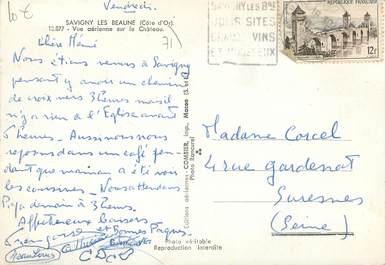 10€
Vendredi
SAVIGNY LES BEAUNE (Côte d'Or).
12.877 - Vue aérienne sur le Château.
Chère Mémé
71
Nous étions venus à Savigny
pensant y avoir un chemin
de croix vers 3 heures mais il
n'y a rien à l'Eglise avant
6 heures - Aussi nous nous
reposons dans un café pen-
dant que maman a été voir
les cousines - Nous attendons
Papa demain à 3 heures.
Affectueux baisers
et Bonnes Pâques
Photo véritable
Reproduction interdite
Editions aériennes COMBIER, imp., Macon (S. et L.)
Photo Rancurel
SAVIGNY LES BNE
SITES
VINS
ET
REPUBLIQUE FRANÇAISE
12F
Madame Corcel
4 rue Gardenat
Suresnes
(Seine)